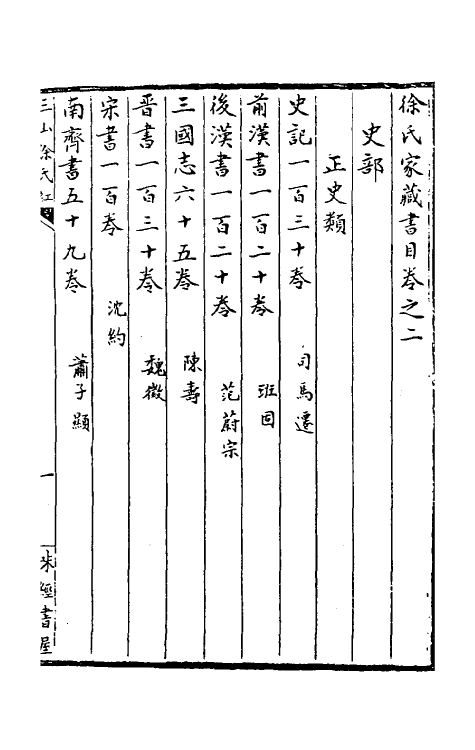 徐氏家藏書目卷之二
史部
正史類
史記一百三十卷　司馬遷
前漢書一百二十卷　班固
後漢書一百二十卷　范蔚宗
三國志六十五卷　陳壽
晉書一百三十卷　魏徵
宋書一百卷　沈約
南齊書五十九卷　蕭子顯
三山徐氏紅
一
經書屋